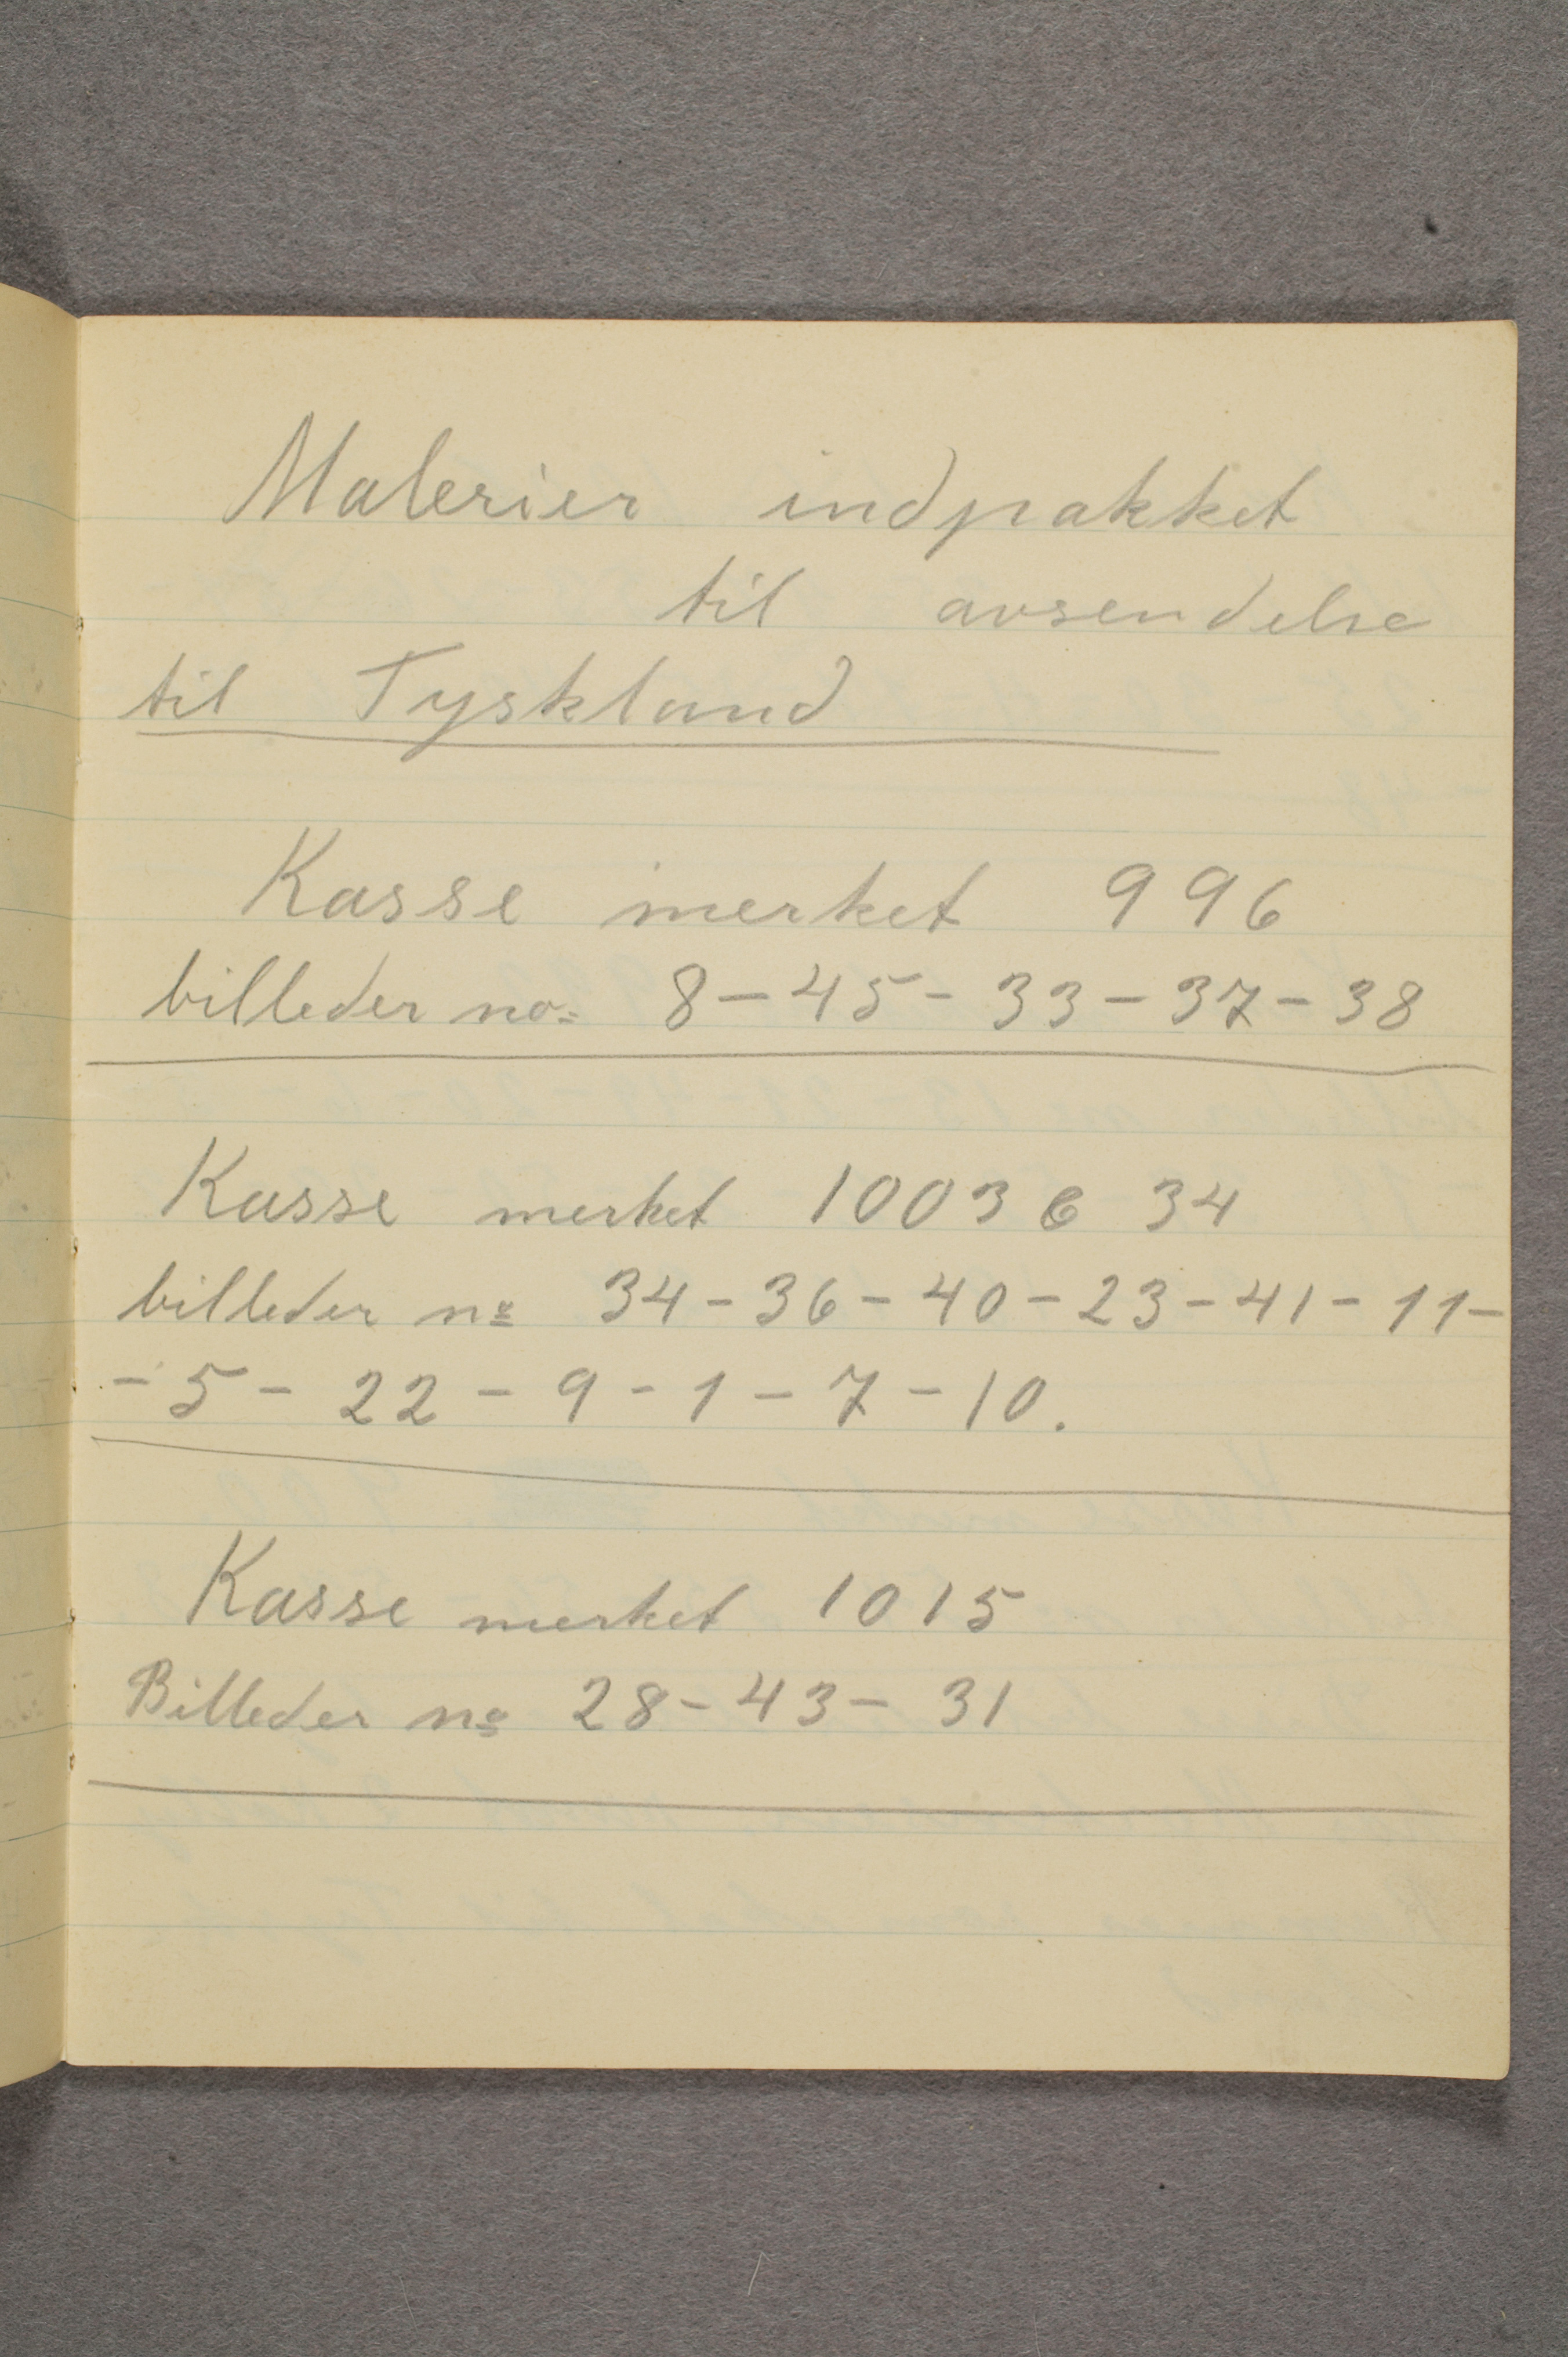 Malerier indpakket
til avsendelse
til Tyskland
Kasse merket 996
billeder no= 8-45-33-37-38
Kasse merket 10036 34
billeder no 34-36-40-23-41-11-
-5-22-9-1-7-10.
Kasse merket 1015
Billeder no 28-43-31